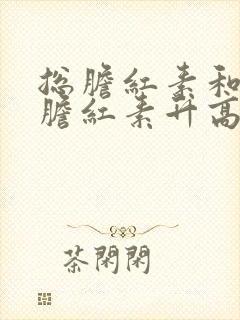 总膽紅素和
膽紅素升高
茶閑閑